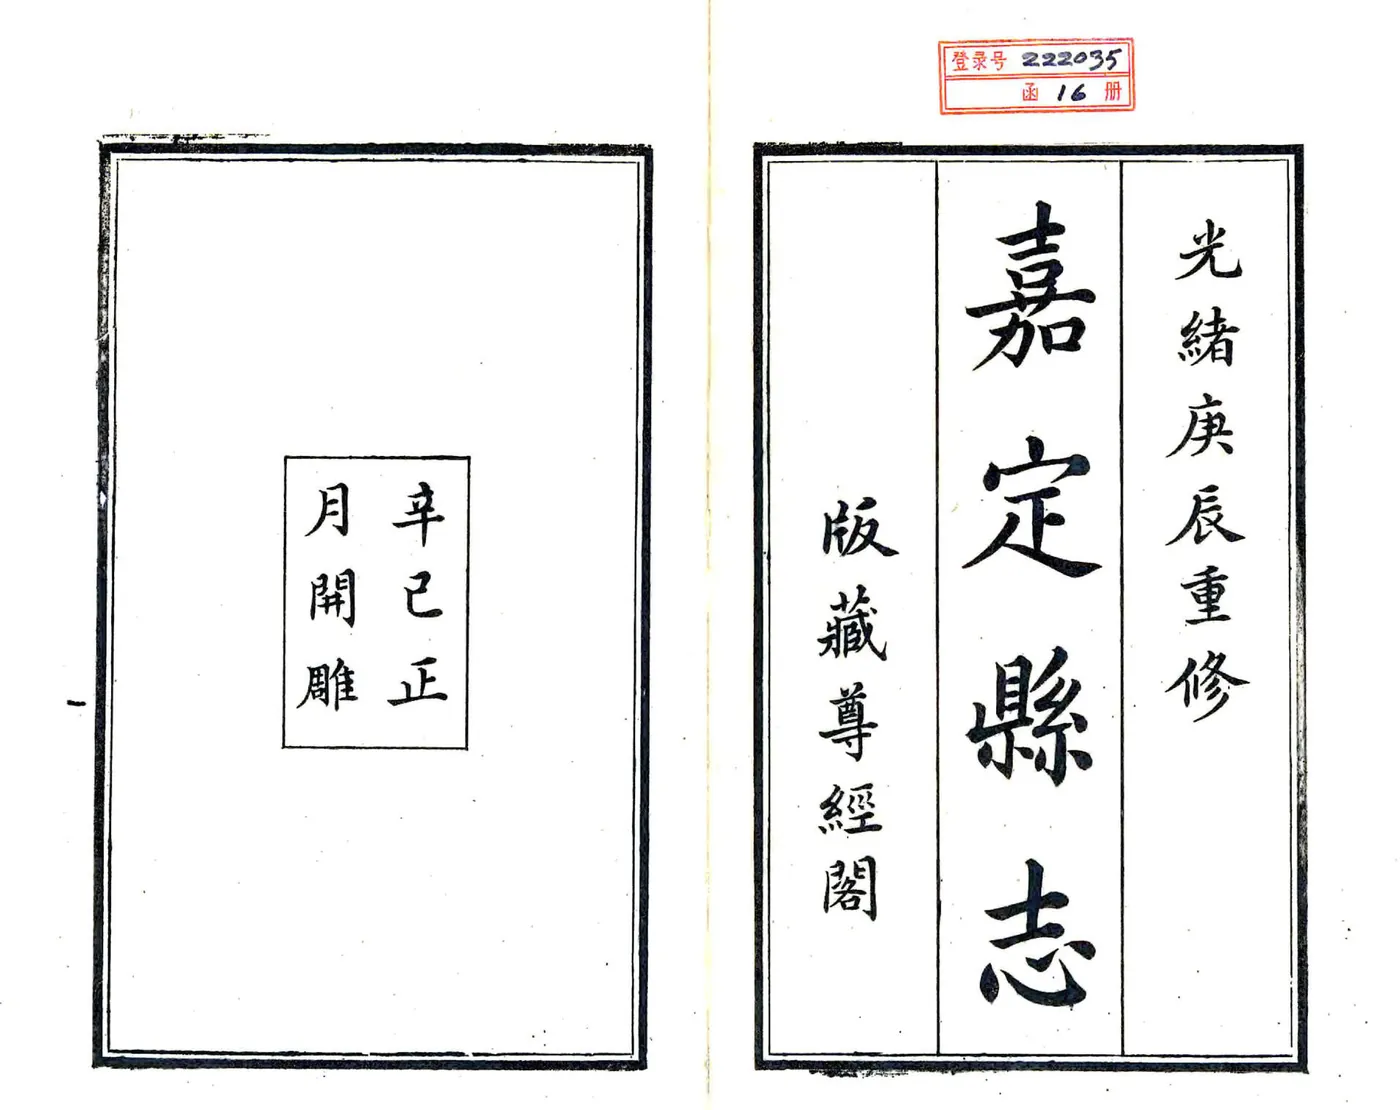 登录号 222035
函 16 册
光緒庚辰重修
嘉定縣志
版藏尊經閣
辛巳正
月開雕